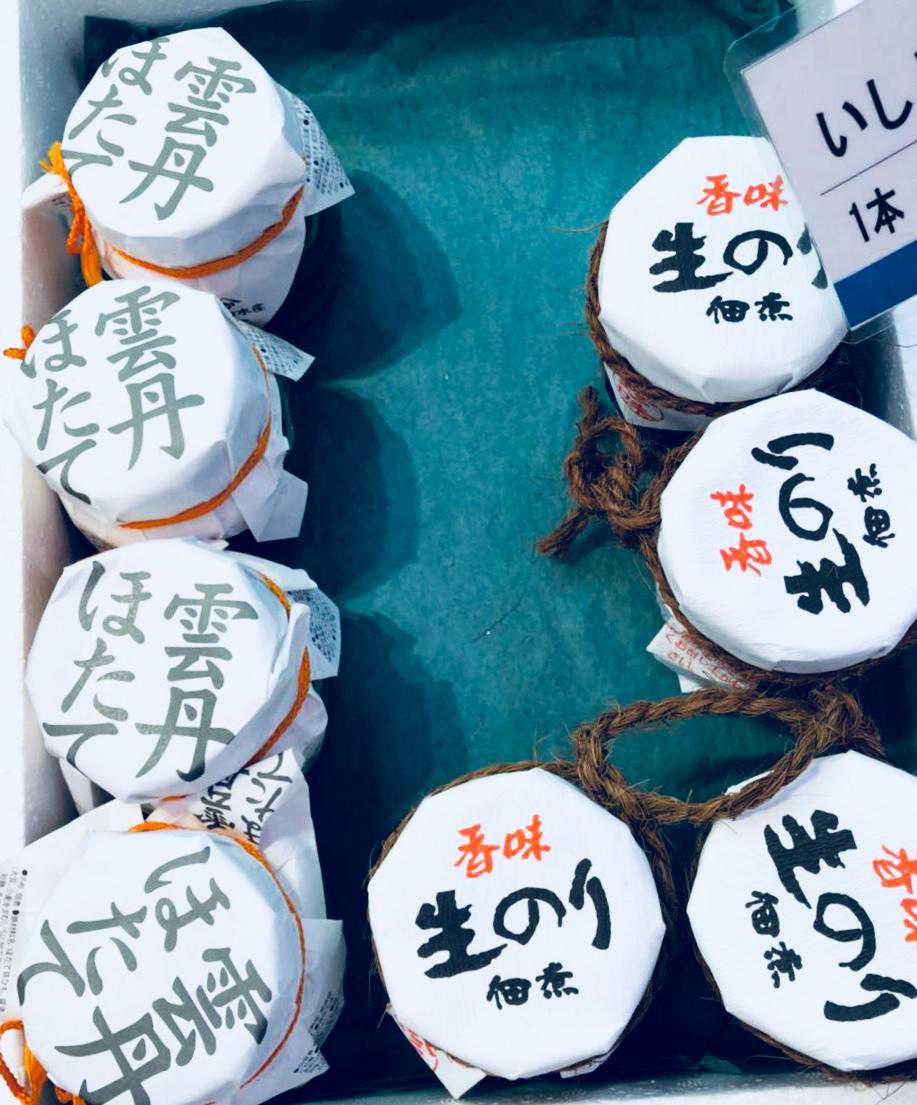 雲丹
ほたて
雲丹
ほたて
雲丹
ほたて
雲丹
ほたて
いし
1本
香味
生の
佃煮
香味
生のり
佃煮
香味
生のり
佃煮
香味
生のり
佃煮